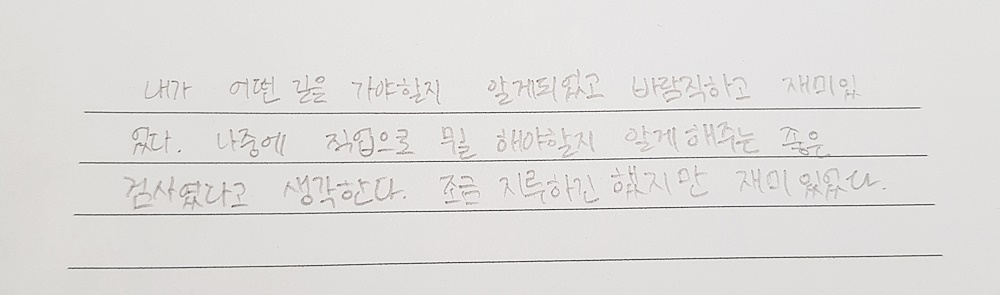 내가 어떤 길을 가야할지 알게되었고 바람직하고 재미있
었다. 나중에 직업으로 뭘 해야할지 알게해주는 좋은
검사였다고 생각한다. 조금 지루하긴 했지만 재미있었다.